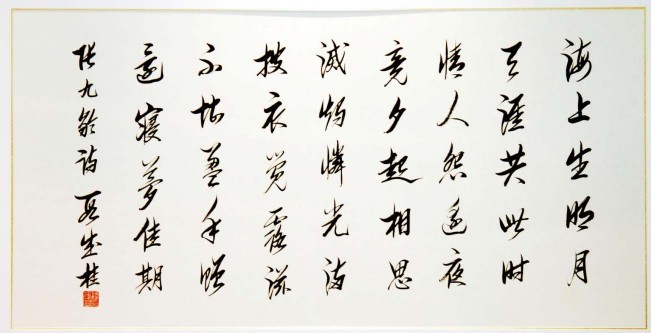 海上生明月
天涯共此时
情人怨遥夜
竟夕起相思
灭烛怜光满
披衣觉露滋
不堪盈手赠
还寝梦佳期
张九龄诗 成桂